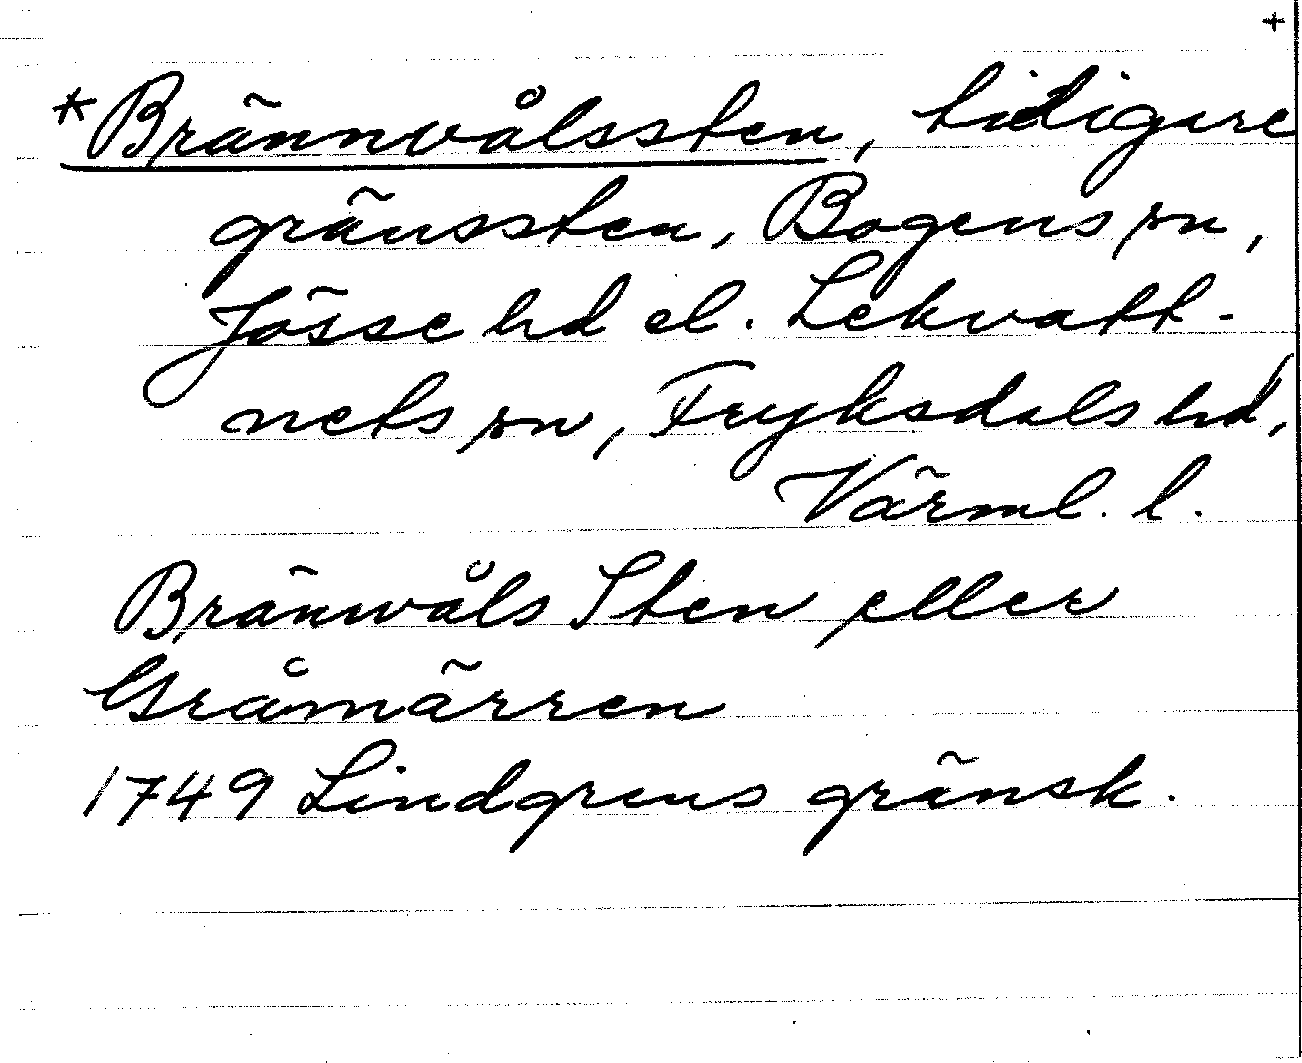 +
*Brännvålssten, tidigare
gränssten, Bogens sn,
Jösse hd el. Lekvatt-
nets sn, Fryksdals hd,
Värml. l.
Bränwåls Sten eller
Gråmärren
1749 Lindgrens gränsk.